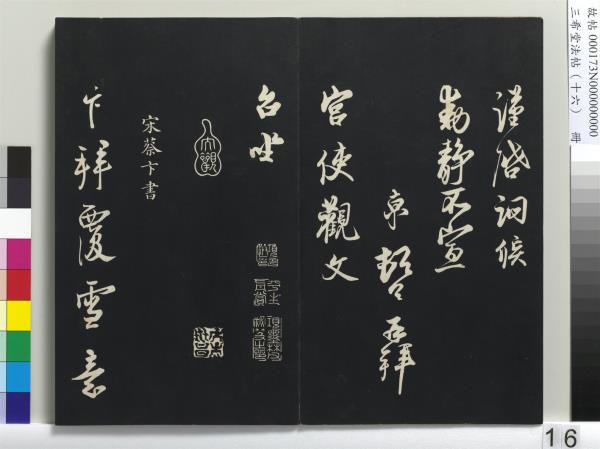 故帖 000173N000000000
三希堂法帖（十六） 冊
謹啓詗候
動靜不宣
京頓首再拜
宮使觀文
台坐
大觀
宋蔡卞書
卞拜覆雪意
16